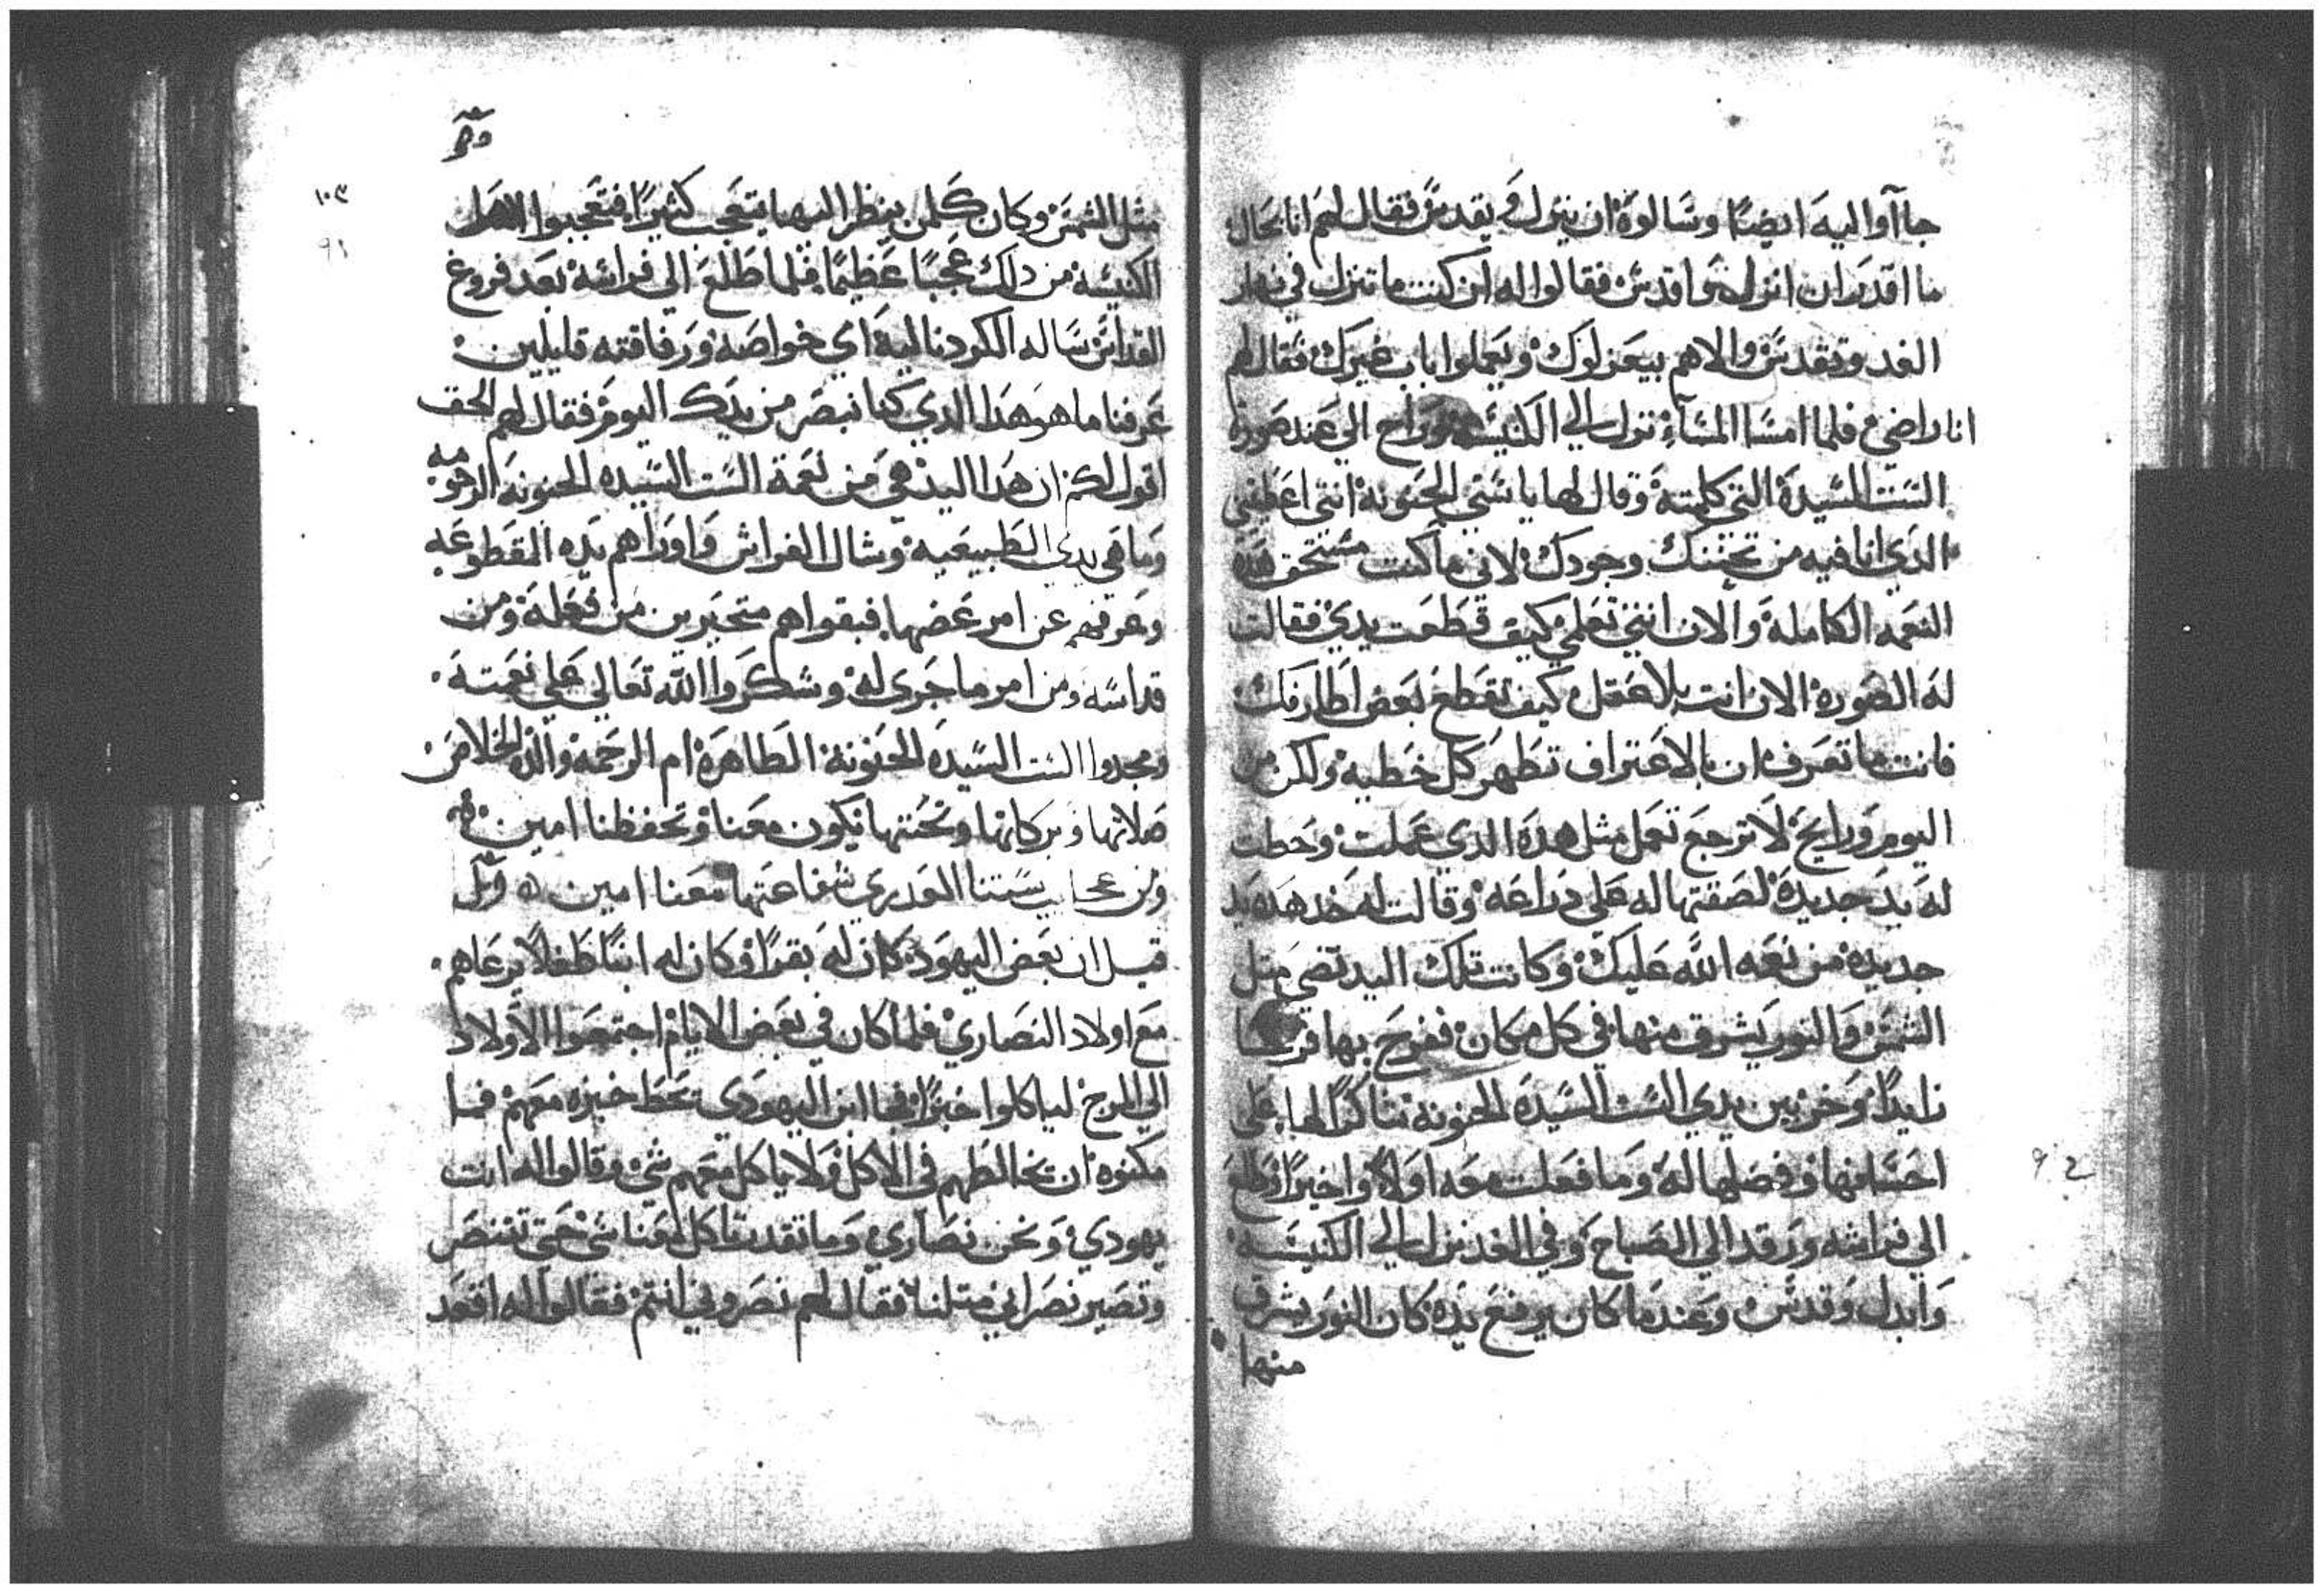 جاآوا اليه ايضا وسالوه ان ينزل ويقدس فقال لهم انا بحال
ما اقدر ان انزل ولا اقدس فقالوا له ان كنت ما تنزل في نهار
الغد وتقدس والا هم بيعزلوك ويعملوا بابا غيرك فقال لهم
انا راضي فلما امسا المسآء نزل الي الكنيسه وراح الي عند صورة
الست السيدة التي كلمته وقال لها يا ستي الحنونه انتي اعطتيني
الدي انا فيه من تحننك وجودك لاني ما كنت مستحق هده
النعمه الكامله والان انتي تعلمي كيف قطعت يدي فقالت
له الصوره الان انت بلا عقل كيف تقطع بعض اطارفك
فانت ما تعرف ان بالاعتراف تطهر كل خطيه ولكن من
اليوم ورايح لا ترجع تعمل مثل هده الدي عملت وحطت
له يد جديدة لصقتها له علي دراعه وقالت له خد هده يد
جديده من نعمه الله عليك وكانت تلك اليد تضي متل
الشمس والنور يشرق منها في كل مكان ففرح بها فرحا
زايدا وخر بين يدي الست السيدة الحنونه شاكرا لها علي
احسانها وفضلها له وما فعلت معه اولا واخيرا وطلع
الي فراشه ورقد الي الصباح وفي الغد نزل الي الكنيسه
وابدل وقدس وعندما كان يرفع يده كان النور يشرق
منها
٩٢
١٠٣
٩١
مثل الشمس وكان كلمن ينظر اليها يتعجب كثيرا فتعجبوا اهل
الكنيسه من دلك عجبا عظيما فلما طلع الي فراشه بعد فروغ
القداس ساله الكردناليه اي خواصه ورفاقته قايلين
عرفنا ما هو هدا الدي كنا نبصر من يدك اليوم فقال لهم الحق
اقول لكم ان هدا اليد هي من نعمة الست السيده الحنونه الرحومه
وما هي يدي الطبيعيه وشال الفراش واوراهم يده المقطوعه
وعرفهم عن امر عضها فبقواهم متحيرين من فعله ومن
قداسه ومن امر ما جري له وشكروا الله تعالي علي نعمته
ومجدوا الست السيده الحنونة الطاهرة ام الرحمه والدة الخلاص
صلاتها وبركاتها وتحننها يكون معنا وتحفظنا امين
ومن عجايب ستنا العدري شفاعتها معنا امين
قيل ان بعض اليهود كان له بقرا وكان له ابنا طفلا يرعاهم
مع اولاد النصاري فلما كان في بعض الايام اجتمعوا الاولاد
الي المرج لياكلوا خبزا فجا ابن اليهودي يحط خبزه معهم فما
مكنوه ان يخالطهم في الاكل ولا ياكل معهم شي وقالوا له انت
يهودي ونحن نصاري وما تقدر تاكل معنا شي حتي تتنصر
وتصير نصراني متلنا فقال لهم نصروني انتم فقالوا له اقعد